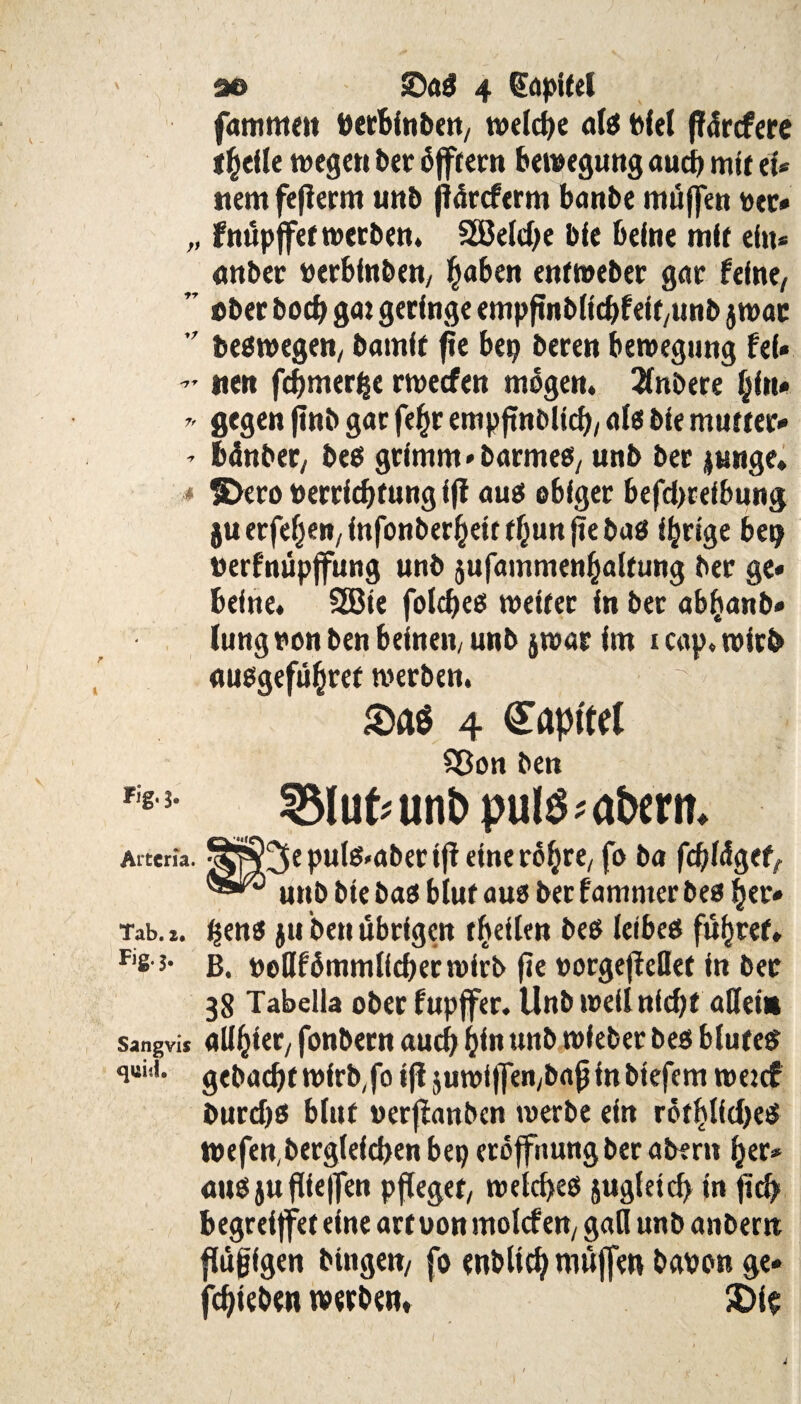 20 Das 4 Capitel
sammen verbinden, welche als viel stärckere
theile wegen der öfftern bewegung auch mit ei-
nem festerm und stärckerm bande müssen ver-
„ knüpffet werden. Welche die beine mit ein-
ander verbinden, haben entweder gar keine,
" oder doch gar geringe empfindlichkeit, und zwar
" deswegen, damit sie bey deren bewegung kei-
" nen schmertze rwecken mögen. Andere hin-
" gegen sind gar sehr empfindlich, als die mutter-
bänder, des grimm-darmes, und der zunge.
Dero verrichtung ist aus obiger beschreibung
zu ersehen, insonderheit thun sie das ihrige bey
verknüpffung und zusammenhaltung der ge-
beine. Wie solches weiter in der abhand-
lung von den beinen, und zwar im 1 cap. wird
ausgeführet werden.
Das 4 Capitel
Von den
Fig. 3. Blut- und puls-adern.
Arteria. Die puls-ader ist eine röhre, so da schläget,
und die das blut aus der kammer des her-
Tab. 2. tzens zu den übrigen theilen des leibes führet.
Fig. 3. B. vollkömmlicher wird sie vorgestellet in der
38 Tabella oder kupffer. Und weil nicht allein
Sangvis allhier, sondern auch hin und wieder des blutes
quid. gedacht wird, so ist zuwissen, daß in diesem werck
durchs blut verstanden werde ein röthliches
wesen, dergleichen bey eröffnung der adern her-
aus zu fliessen pfleget, welches zugleich in sich
begreiffet eine art von molcken, gall und andern
flüßigen dingen, so endlich müssen davon ge-
schieden werden. Die